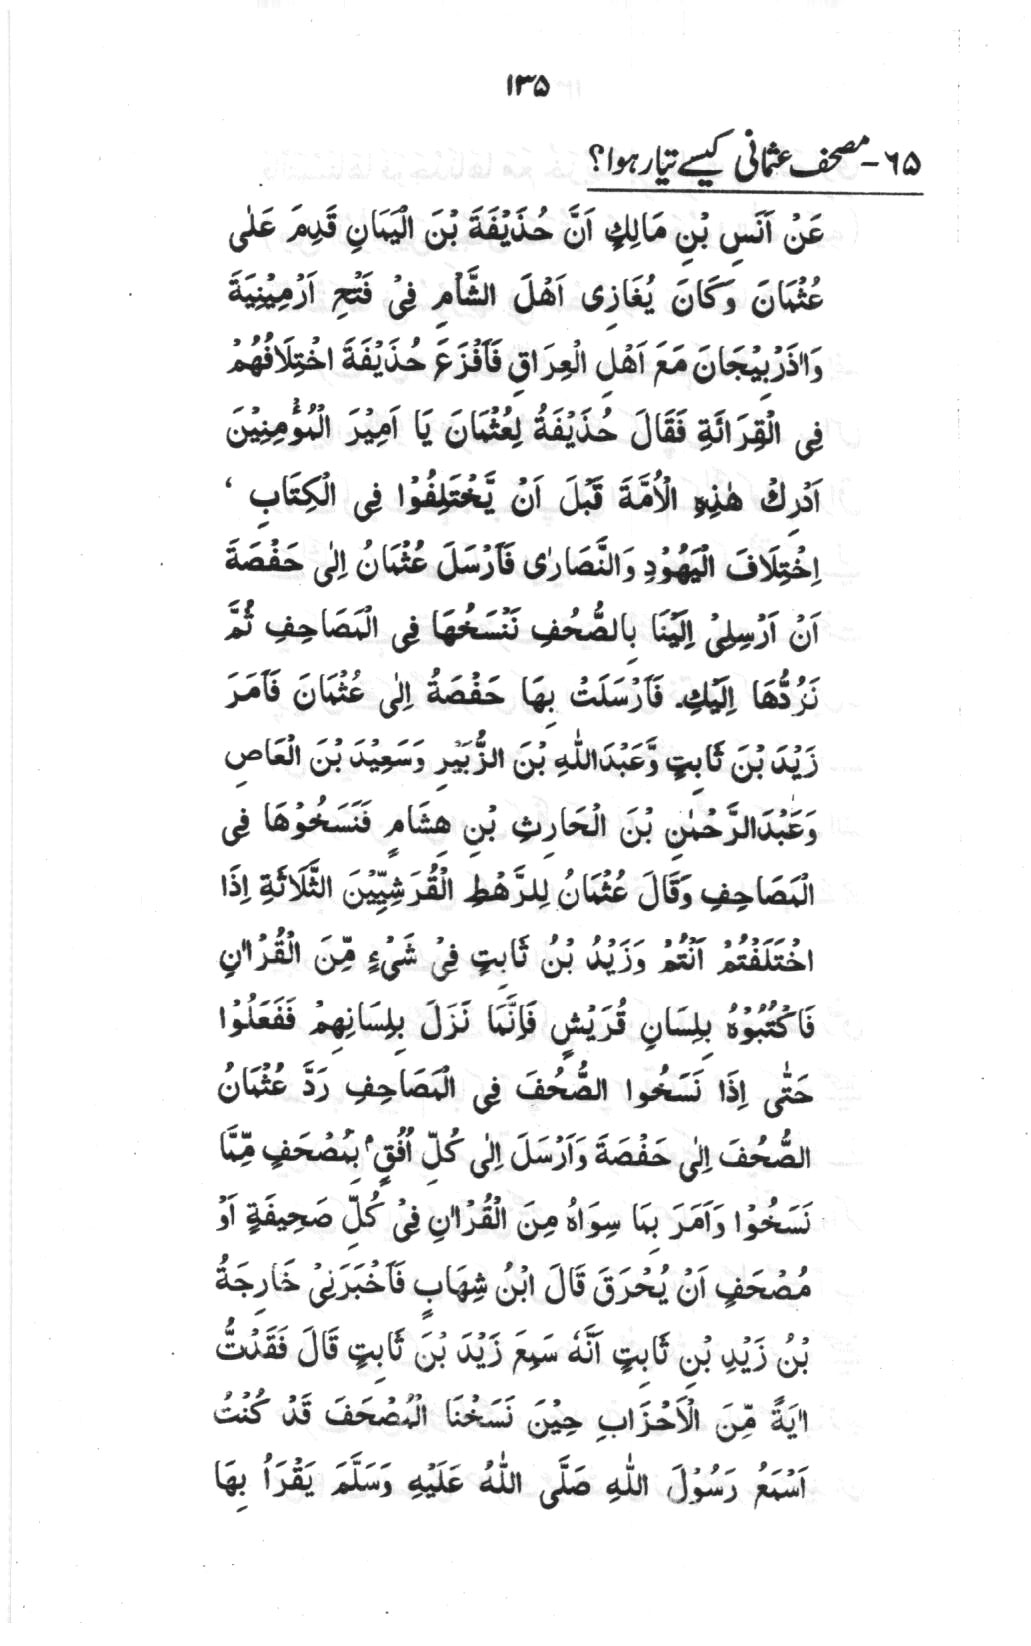 ۱۳۵
۶۵- مصحف عثمانی کیسے تیار ہوا؟
عَنْ اَنَسِ بْنِ مَالِكٍ اَنَّ حُذَيْفَةَ بْنَ الْيَمَانِ قَدِمَ عَلٰى
عُثْمَانَ وَكَانَ يُغَازِى اَهْلَ الشَّاْمِ فِىْ فَتْحِ اَرْمِيْنِيَةَ
وَاٰذَرْبِيْجَانَ مَعَ اَهْلِ الْعِرَاقِ فَاَفْزَعَ حُذَيْفَةَ اخْتِلَافُهُمْ
فِى الْقِرَائَةِ فَقَالَ حُذَيْفَةُ لِعُثْمَانَ يَا اَمِيْرَ الْمُؤْمِنِيْنَ
اَدْرِكْ هٰذِهِ الْاُمَّةَ قَبْلَ اَنْ يَّخْتَلِفُوْا فِى الْكِتَابِ ‘
اِخْتِلَافَ الْيَهُوْدِ وَالنَّصَارٰى فَاَرْسَلَ عُثْمَانُ اِلٰى حَفْصَةَ
اَنْ اَرْسِلِىْ اِلَيْنَا بِالصُّحُفِ نَنْسَخُهَا فِى الْمَصَاحِفِ ثُمَّ
نَرُدُّهَا اِلَيْكِ۔ فَاَرْسَلَتْ بِهَا حَفْصَةُ اِلٰى عُثْمَانَ فَاَمَرَ
زَيْدَ بْنَ ثَابِتٍ وَّعَبْدَاللّٰهِ بْنَ الزُّبَيْرِ وَسَعِيْدَ بْنَ الْعَاصِ
وَعَبْدَالرَّحْمٰنِ بْنَ الْحَارِثِ بْنِ هِشَامٍ فَنَسَخُوْهَا فِى
الْمَصَاحِفِ وَقَالَ عُثْمَانُ لِلرَّهْطِ الْقُرَشِيِّيْنَ الثَّلَاثَةِ اِذَا
اخْتَلَفْتُمْ اَنْتُمْ وَزَيْدُ بْنُ ثَابِتٍ فِىْ شَىْءٍ مِّنَ الْقُرْاٰنِ
فَاكْتُبُوْهُ بِلِسَانِ قُرَيْشٍ فَاِنَّمَا نَزَلَ بِلِسَانِهِمْ فَفَعَلُوْا
حَتّٰى اِذَا نَسَخُوا الصُّحُفَ فِى الْمَصَاحِفِ رَدَّ عُثْمَانُ
الصُّحُفَ اِلٰى حَفْصَةَ وَاَرْسَلَ اِلٰى كُلِّ اُفُقٍ ۢ بِمُصْحَفٍ مِّمَّا
نَسَخُوْا وَاَمَرَ بِمَا سِوَاهُ مِنَ الْقُرْاٰنِ فِىْ كُلِّ صَحِيفَةٍ اَوْ
مُصْحَفٍ اَنْ يُحْرَقَ قَالَ ابْنُ شِهَابٍ فَاَخْبَرَنِىْ خَارِجَةُ
بْنُ زَيْدِ بْنِ ثَابِتٍ اَنَّهٗ سَمِعَ زَيْدَ بْنَ ثَابِتٍ قَالَ فَقَدْتُّ
اٰيَةً مِّنَ الْاَحْزَابِ حِيْنَ نَسَخْنَا الْمُصْحَفَ قَدْ كُنْتُ
اَسْمَعُ رَسُوْلَ اللّٰهِ صَلَّى اللّٰهُ عَلَيْهِ وَسَلَّمَ يَقْرَأُ بِهَا